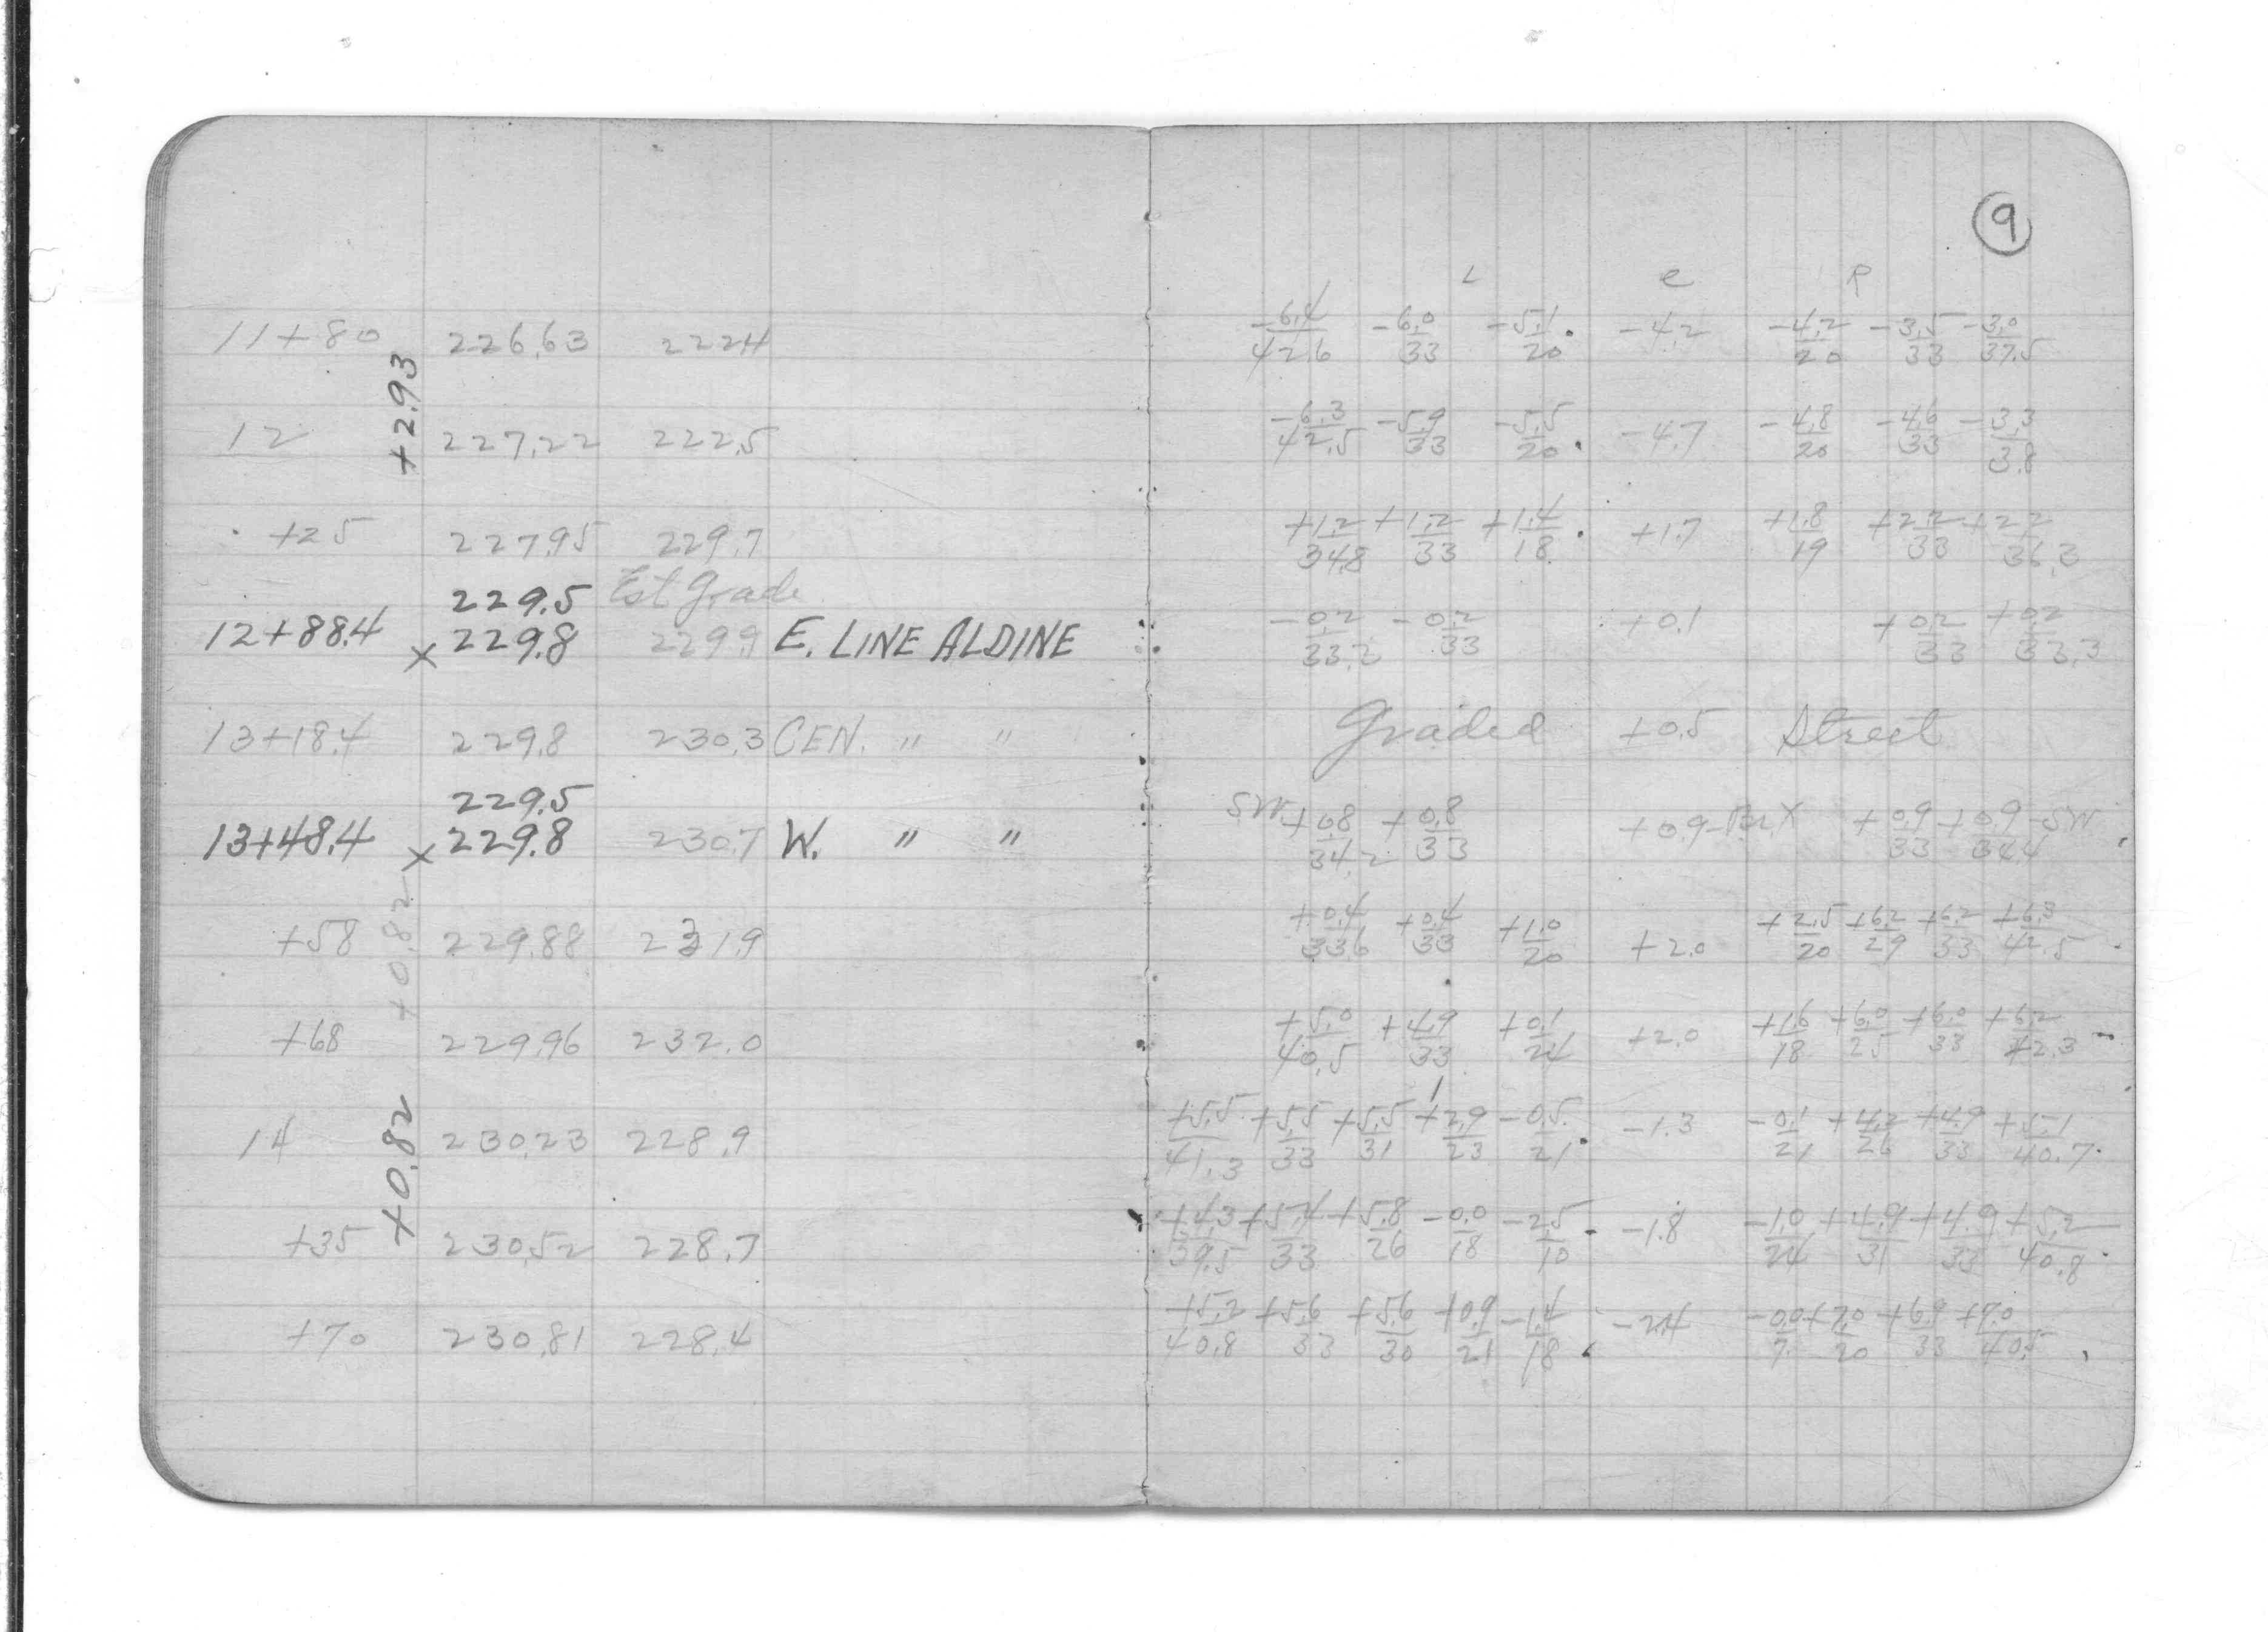 9
L e R
11+80 226.63 222.4 -6.4/42.6 -6.0/33 -5.1/20 -4.2 -4.2/20 -3.5/33 -3.0/37.5
+2.93
12 227.22 222.5 -6.3/42.5 -5.9/33 -5.5/20 -4.7 -4.8/20 -4.6/33 -3.3/3.8
+25 227.95 229.7 +1.2/34.8 +1.2/33 +1.4/18 +1.7 +1.8/19 +2.2/33 +2.2/36.3
229.5 Est Grade
12+88.4 x 229.8 229.9 E. LINE ALDINE -0.2/33.2 -0.2/33 +0.1 +0.2/33 +0.2/33.3
13+18.4 229.8 230.3 CEN. " " Graded +0.5 Street
229.5
13+48.4 x 229.8 230.7 W. " " SW. +0.8/34.2 +0.8/33 +0.9 +0.9/33 +0.9/34.4 SW.
+0.82
+58 229.88 231.9 +0.4/33.6 +0.4/33 +1.0/20 +2.0 +2.5/20 +6.2/29 +6.2/33 +6.3/42.5
+68 229.96 232.0 +5.0/40.5 +4.9/33 +0.1/24 +2.0 +1.6/18 +6.0/25 +6.0/33 +6.2/42.3
14 230.23 228.9 +5.5/41.3 +5.5/33 +5.5/31 +2.9/23 -0.5/21 -1.3 -0.1/21 +4.2/26 +4.9/33 +5.1/40.7
+0.82
+35 230.52 228.7 +4.3/39.5 +5.4/33 +5.8/26 -0.0/18 -2.5/10 -1.8 -1.0/24 +4.9/31 +4.9/33 +5.2/40.8
+70 230.81 228.4 +5.2/40.8 +5.6/33 +5.6/30 +0.9/21 -1.4/18 -2.4 -0.0/7 +7.0/20 +6.9/33 +7.0/40.5